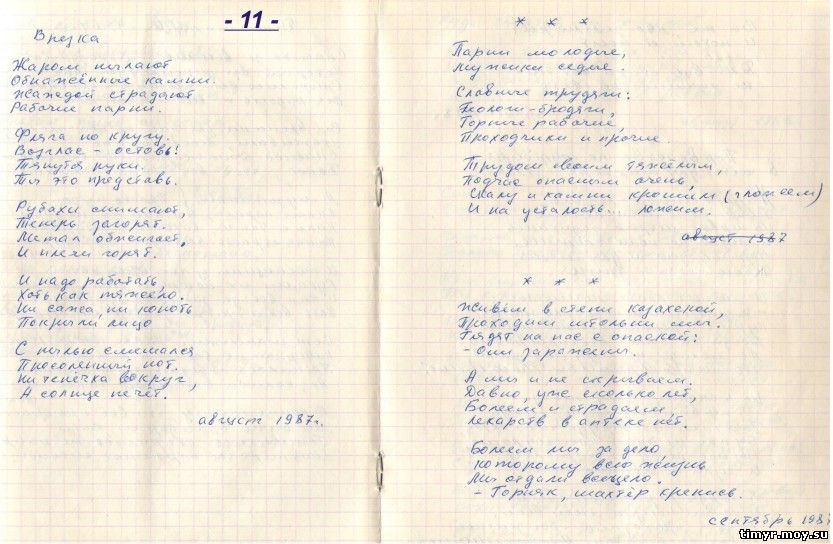 - 11 -
Врезка
Жаром пылают
Обнажённые камни.
Жаждой страдают
Рабочие парни.
Фляга по кругу.
Возглас – оставь!
Тянутся руки.
Ты это представь.
Рубахи снимают,
Теперь загорят.
Метал обжигает,
И плечи горят.
И надо работать,
Хоть как тяжело.
Ни сажа, ни копоть
Покрыли лицо
С пылью смешался
Просоленный пот.
Ни тенёчка вокруг,
А солнце печёт.
август 1987г.
* * *
Парни молодые,
Мужики седые.
Славные трудяги:
Геологи-бродяги,
Горные рабочие,
Проходчики и прочие.
Трудом своим тяжёлым,
Подчас опасным очень,
Скалу и камни крошим (гложем)
И на усталость... ложим.
август 1987
* * *
Живём в степи казахской,
Проходим штольни мы.
Глядят на нас с опаской:
- Они заражены.
А мы и не скрываем.
Давно, уже сколько лет,
Болеем и страдаем,
Лекарств в аптеке нет.
Болеем мы за дело,
которому всю жизнь
Мы отдали всецело.
- Горняк, шахтёр крепись.
сентябрь 1987
timyr.moy.su